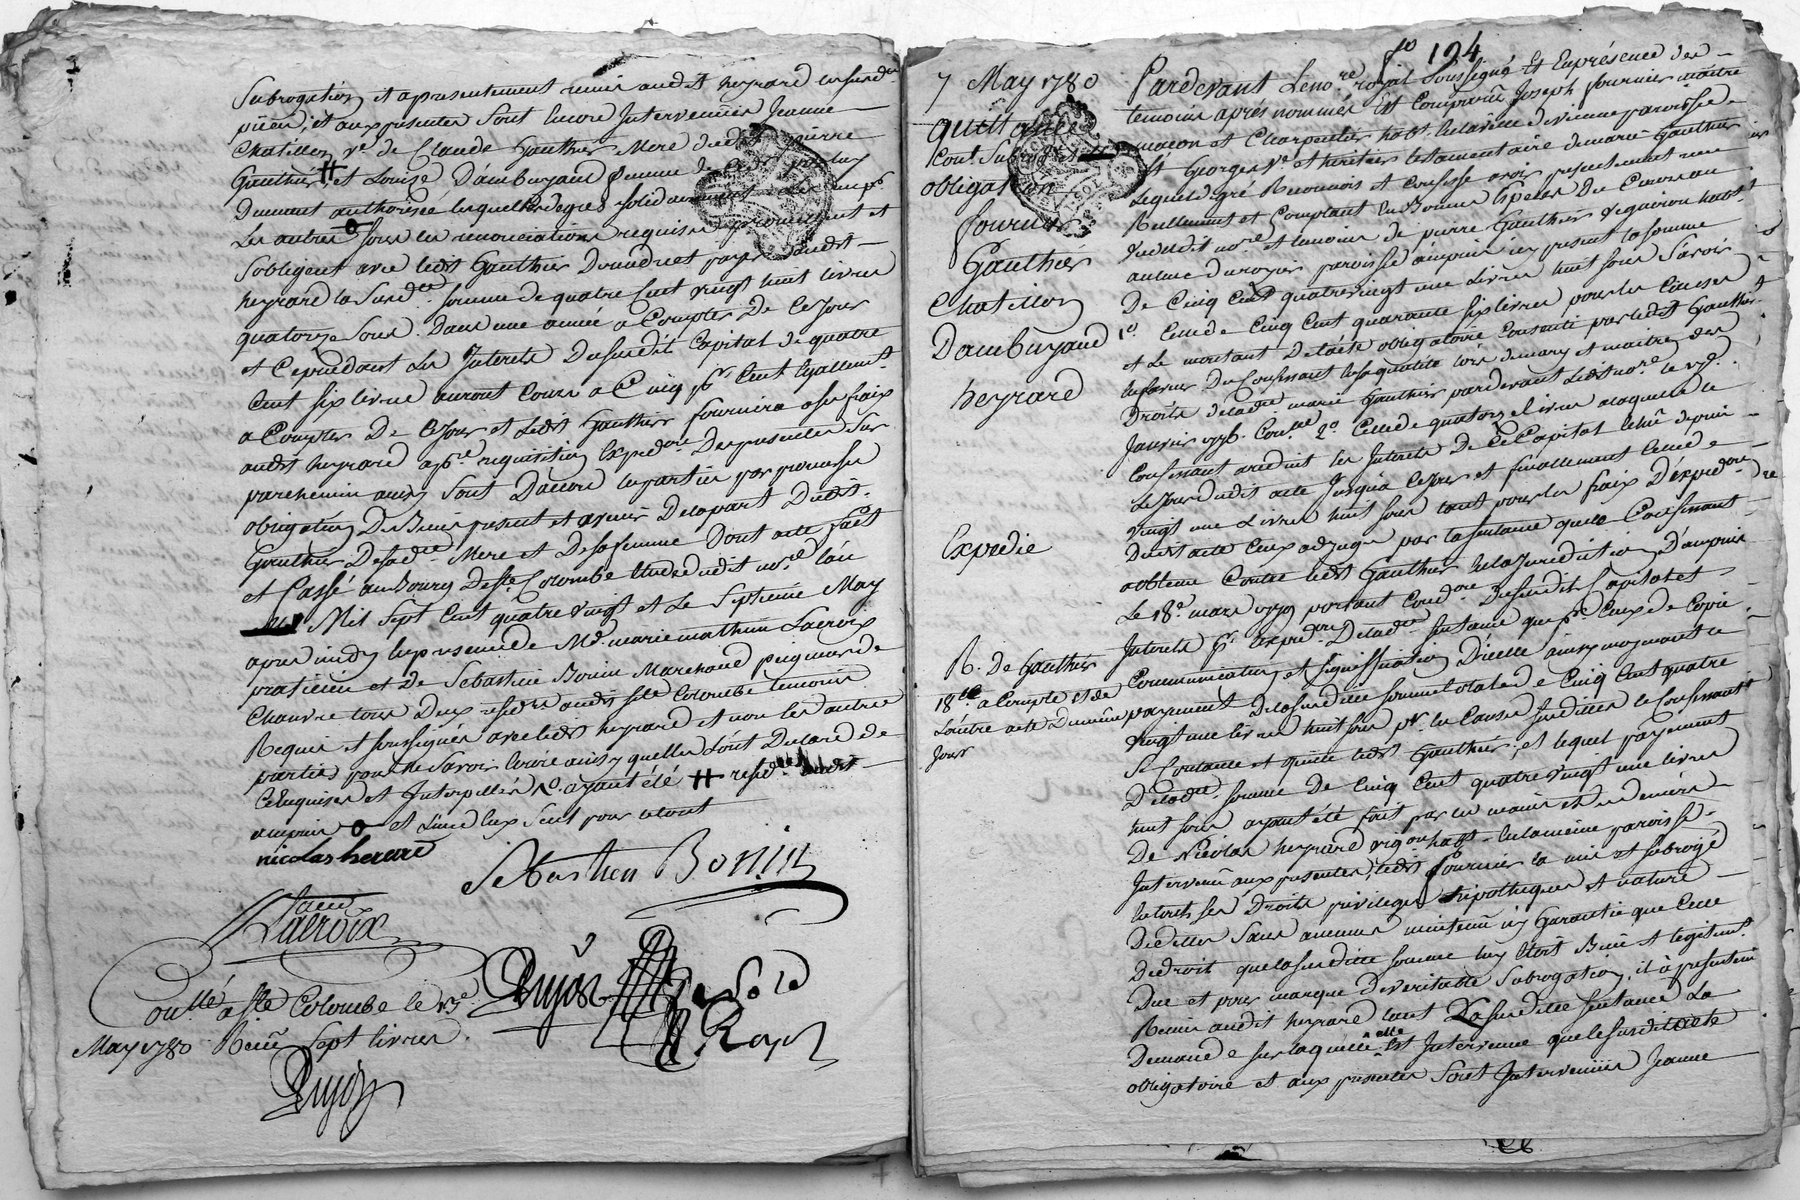 Subrogation, et apresentement remis audit heyrard lesusdte
pieces, et aux presentes sont encore Intervenues Jeanne
Chatillon ve de Claude Gauthier Mere dudit pierre
Gauthier # et Louise Dambuyand femme
Duement authorisée lesquelles de gré solidairement
Les autres o sous les renonciations requises promettent et
s'obligent avec ledit Gauthier De rendre et payer audit
heyrard la susde somme de quatre Cent vingt huit livres
quatorze sous Dans une année a Compter De Ce Jour
et Cependant Les Interets Dususdit Capital de quatre
Cent six livres auront Cours a Cinq pr Cent Egallemt
a Compter De Ce Jour et Ledit Gauthier fournira a ses fraix
audit heyrard a pre requisition Expedon Des presentes sur
parchemin ainsy sont Daccord les parties par promesses
obligation De Biens presents et avenir De la part Dudit
Gauthier De sade Mere et De sa femme Dont acte fait
et Passé au Bourg De Ste Colombe Etude dudit nore l'an
Mil Sept Cent quatre vingt et Le Septieme May
apres midy En presence de Me marie mathieu Lacroix
praticien et De Sebastien Bonin Marchand peigneur de
Chanvre tous Deux residts audit Ste Colombe temoins
Requis et soussignés avec ledit heyrard et non les autres
parties pour ne savoir Ecrire ainsy quelles l'ont Declaré de
Ce Enquises et Interpellées ayant été # reside audit
ampuis o et L'une Eux Seul pour le tout
nicolas herare
Sebastien Bonin
Lacroix
Dujon
Coullé a Ste Colombe le 15e
May 1780 Reçu Sept livres
Dujon
fo 194
7 May 1780
quittance
Cont. Subrogat. et
obligation
fournier
Gauthier
Chatillon
Dambuyand
heyrard
Expedie
R. De Gauthier
18tt a Compte et de
L'autre acte Du meme
Jour
Pardevant Le nore royal soussigné Et En présence des
temoins après nommés Est Comparu Joseph fournier maitre
maçon et Charpentier habt En la ville de vienne paroisse
St Georges ve et heritier testamentaire de marie Gauthier
Lequel de gré Reconnois et Confesse avoir presentement reçu
Reellement et Comptant En Bonnes Especes Du Cours au
vu dudit nore et temoins de pierre Gauthier vigneron habt
au lieu du royer paroisse d'ampuis icy present la somme
De Cinq Cent quatre vingt une Livres huit sous Savoir
1o. Celle de Cinq Cent quarante six livres pour les Causes
et Le montant De l'acte obligatoire Consenti par ledit Gauthier
En faveur Du Confessant En sa qualité lors de mary et maitre des
Droits de lade marie Gauthier pardevant Ledit nore le
Janvier 1776. Conlé 2o. Celle de quatorze livres a laquelle le
Confessant a reduit les Interets De Ce Capital Echus depuis
Le Jour dudit acte Jusqua Ce Jour et finallement Celle de
vingt une Livres huit sous tant pour les fraix D'Expedon
Dudit acte Ceux adjugés par la sentence que le Confessant
a obtenu Contre ledit Gauthier En la Jurediction D'ampuis
Le 18e mars 1779 portant Condon Dususdit Capital et
Interets pr Expedon De lade Sentence que pr Ceux de Copie
Communication, et signiffication D'icelle ainsy moyenant le
payement De la susditte somme totale de Cinq Cent quatre
vingt une livres huit sous pr les Causes susdittes le Confessant
Se Contente et quitte ledit Gauthier, et lequel payement
De lade somme De Cinq Cent quatre vingt une livres
huit sous ayant été fait par les mains et des deniers
De Nicolas heyrard vigon habt En la meme paroisse
Intervenu aux presentes, ledit fournier la mis et subrogé
En tous ses Droits privileges hipotheques et nature
Dicelles sans aucune maintenue ny Garantie que Celle
De droit que la susditte somme luy Etoit Bien et legitimt
Due et pour marque De veritable Subrogation, il a presentemt
Remis audit heyrard tant La susditte sentence La
Demande sur laquelle elle Est Intervenue que le susdit acte
obligatoire et aux presentes sont Intervenues Jeanne